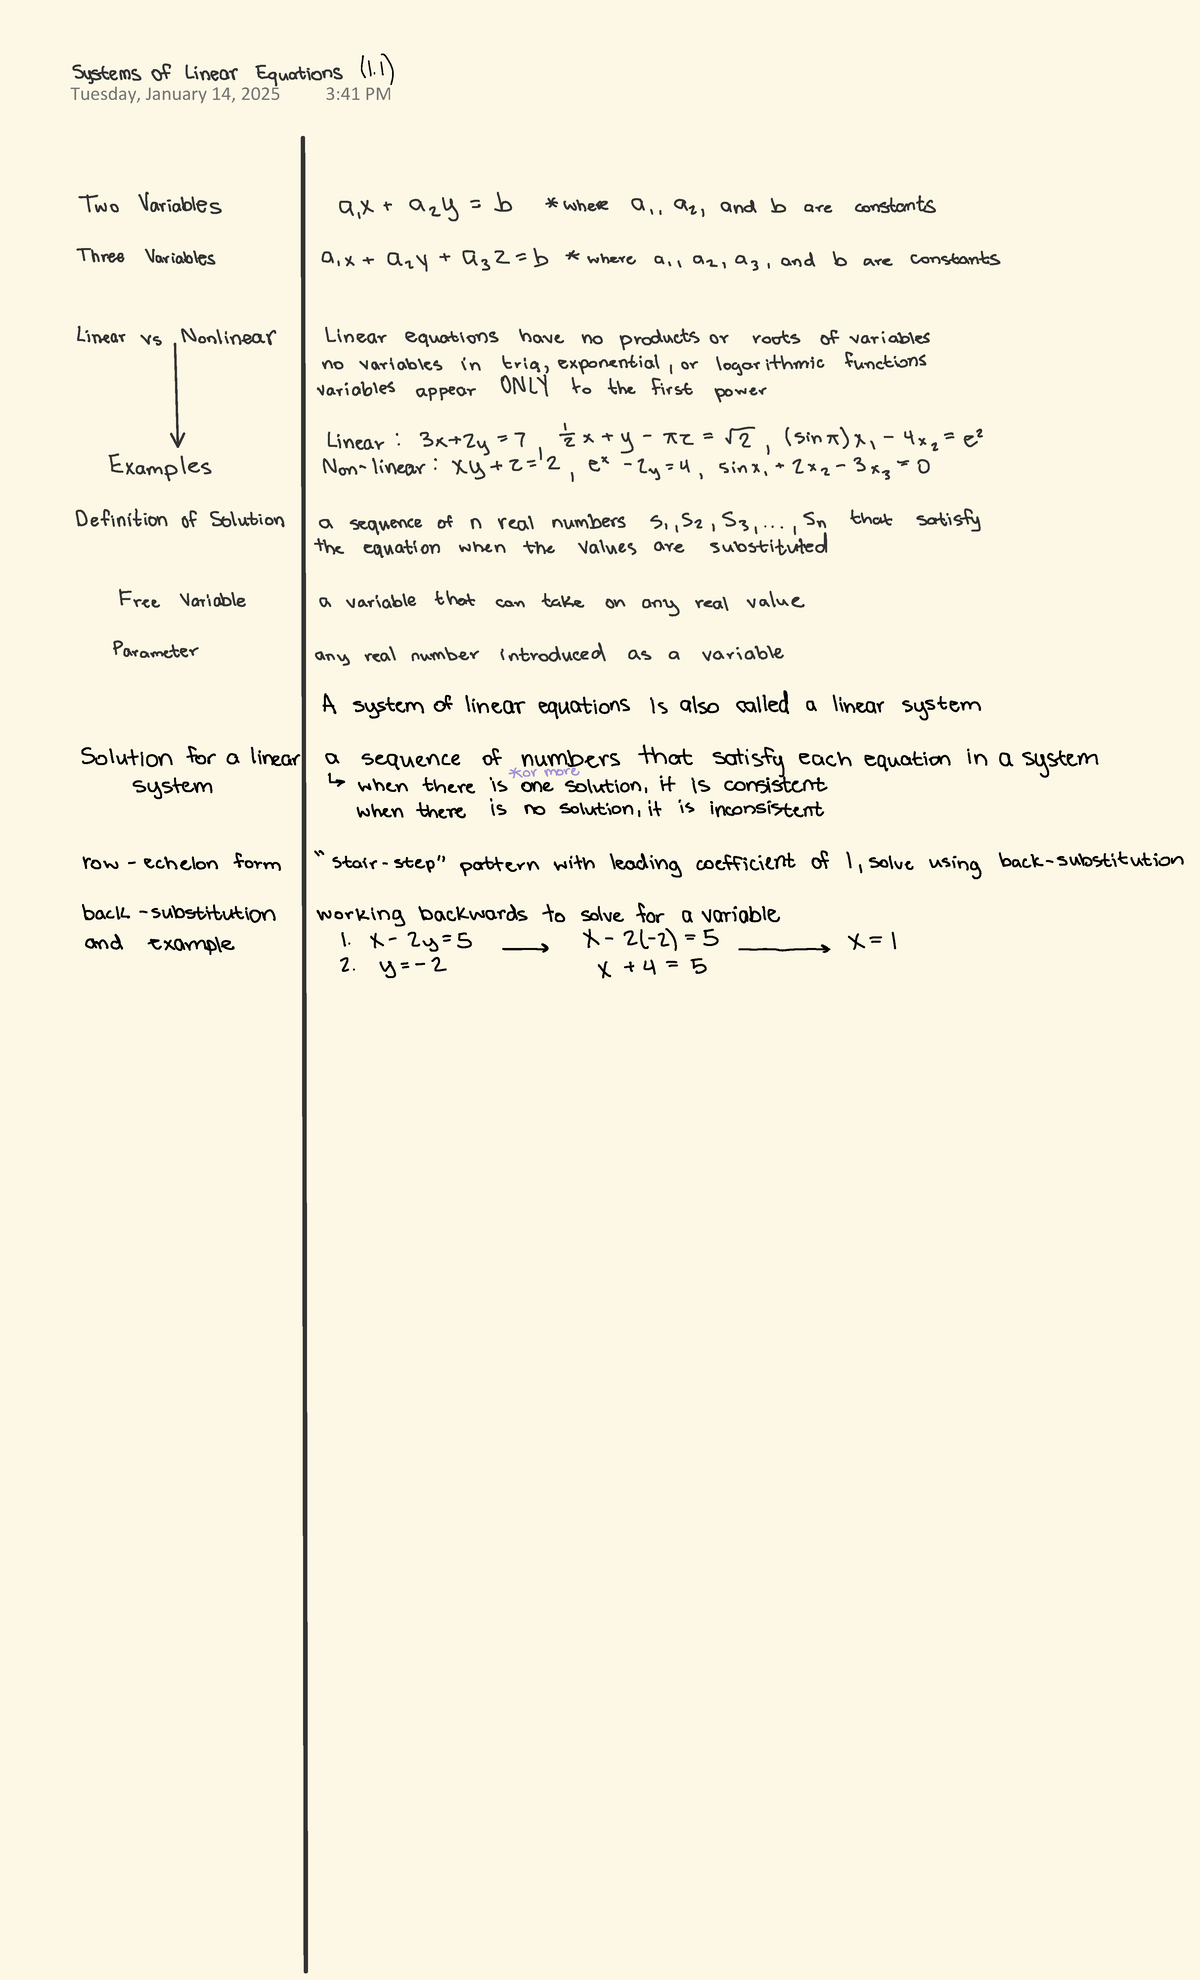 Systems of Linear Equations (1.1)
Tuesday, January 14, 2025 3:41 PM
Two Variables a₁x + a₂y = b *where a₁, a₂, and b are constants
Three Variables a₁x + a₂y + a₃z = b *where a₁, a₂, a₃, and b are constants
Linear vs Nonlinear Linear equations have no products or roots of variables
no variables in trig, exponential, or logarithmic functions
variables appear ONLY to the first power
Linear: 3x+2y=7, ½x + y − πz = √2, (sin π)x₁ − 4x₂ = e²
Examples Non-linear: xy + z = 2, eˣ − 2y = 4, sin x₁ + 2x₂ − 3x₃ = 0
Definition of Solution a sequence of n real numbers s₁, s₂, s₃, ..., sₙ that satisfy
the equation when the values are substituted
Free Variable a variable that can take on any real value
Parameter any real number introduced as a variable
A system of linear equations is also called a linear system
Solution for a linear a sequence of numbers that satisfy each equation in a system
*or more
system ↳ when there is one solution, it is consistent
when there is no solution, it is inconsistent
row-echelon form "stair-step" pattern with leading coefficient of 1, solve using back-substitution
back-substitution working backwards to solve for a variable
and example 1. x − 2y = 5 → x − 2(−2) = 5 → x = 1
2. y = −2 x + 4 = 5